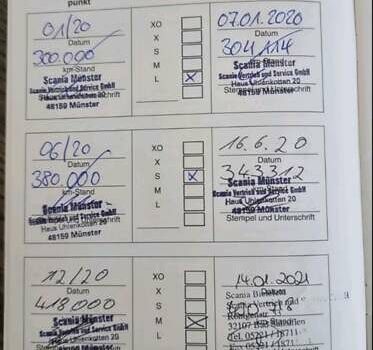 punkt
01/20
Datum
300.000
km-Stand
Scania Münster
Scania Vertrieb und Service GmbH
Haus Uhlenkotten 20
48159 Münster
XO
X
S
M
L
07.01.2020
Datum
304114
Scania Münster
Scania Vertrieb und Service GmbH
Haus Uhlenkotten 20
Stempel und Unterschrift
48159 Münster
06/20
Datum
380.000
km-Stand
Scania Münster
Scania Vertrieb und Service GmbH
Haus Uhlenkotten 20
48159 Münster
XO
X
S
M
L
16.6.20
Datum
343312
Scania Münster
Scania Vertrieb und Service GmbH
Haus Uhlenkotten 20
48159 Münster
Stempel und Unterschrift
12/20
Datum
418.000
km-Stand
Scania Münster
Scania Vertrieb und Service GmbH
Haus Uhlenkotten 20
XO
X
S
M
L
14.01.2021
Datum
Scania
32107 Bad Salzuflen